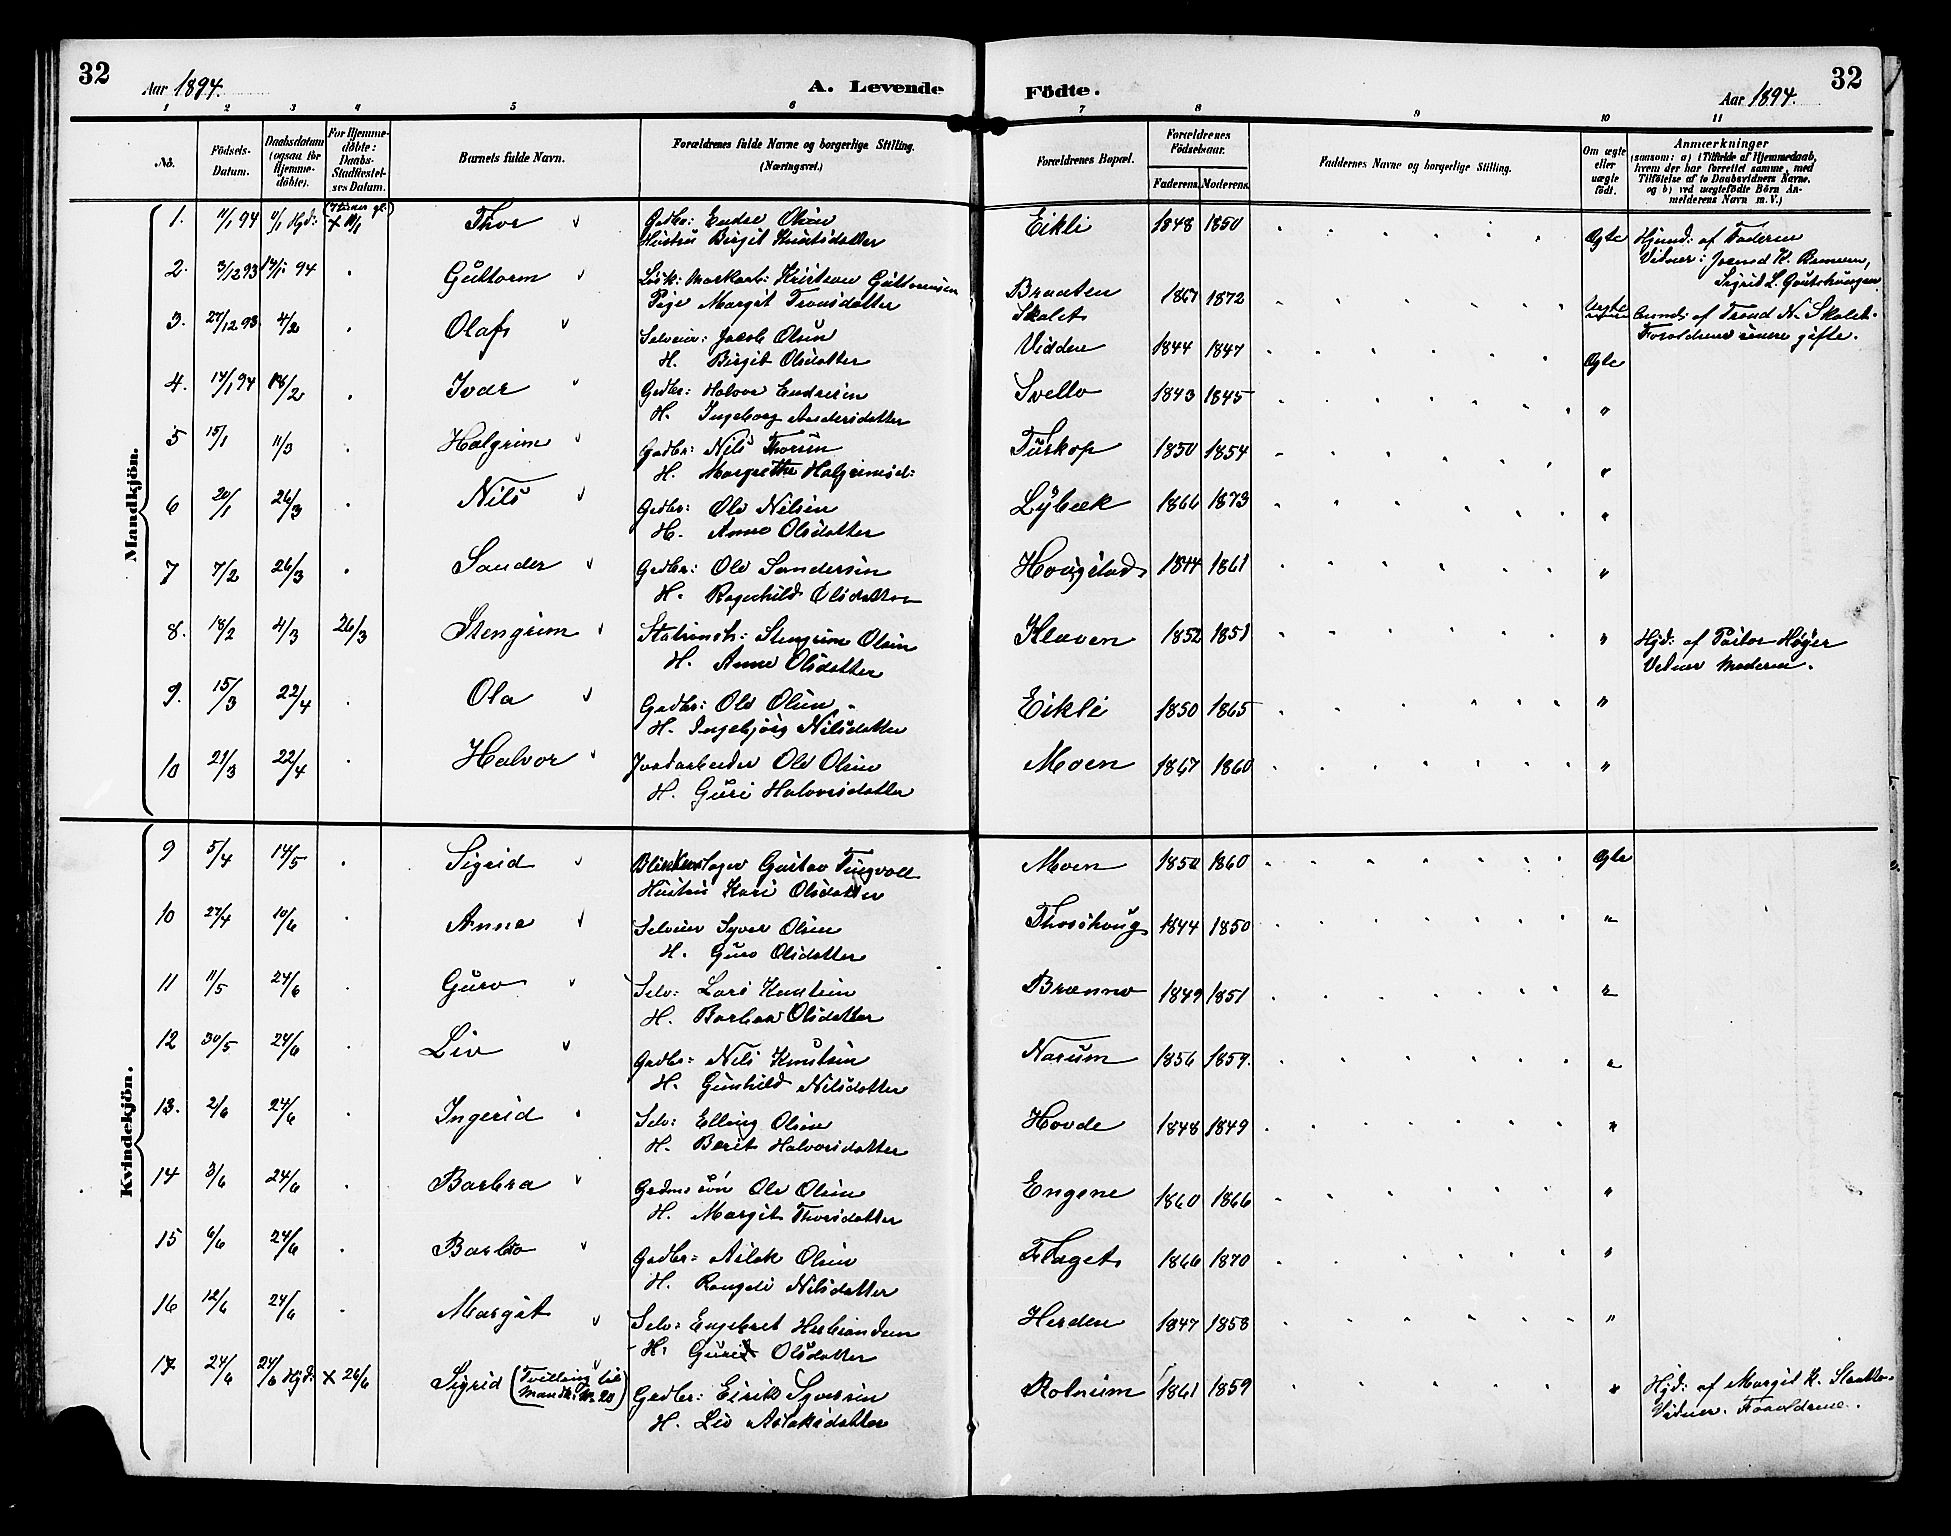 32
Aar 1894.
A. Levende Födte.
Aar 1894.
32
1 2 3 4 5 6 7 8 9 10 11
No.
Födsels-Datum.
Daabsdatum (ogsaa for Hjemmedöbte).
For Hjemmedöbte: Daabs-Stadfæstelses Datum.
Barnets fulde Navn.
Forældrenes fulde Navne og borgerlige Stilling. (Næringsvei.)
Forældrenes Bopæl.
Forældrenes Födselsaar.
Faderens. Moderens.
Faddernes Navne og borgerlige Stilling.
Om ægte eller uægte födt.
Anmærkninger
(saasom: a) i Tilfælde af Hjemmedaab, hvem der har forrettet samme, med Tilföielse af to Daabsvidners Navne, og b) ved uægtefödte Börn Anmelderens Navn m. V.)
Mandkjön.
1. 11/1 94 11/1 Hjd: + 11/1 Thor Gedbr: Endre Olsen Eikli 1848 1850 Ægte Hjmd: af Faderen
Hustru Birgit Knutsdatter Vidner:
2. 3/12 93 14/1 94 Guttorm Kristian Guttormsen Braaten 1867 1872 Uægte Anmd: af Trond N. Skalet.
Pige Margit Tronsdatter Skalet Forældrene senere gifte.
3. 27/12 93 4/2 Olaf Selveier: Jacob Olsen Vidden 1844 1847 Ægte
H. Birgit Olsdatter
4. 14/1 94 18/2 Ivar Gedbr: Halvor Endresen Svello 1843 1845 "
H. Ingeborg Andersdatter
5 15/1 11/3 Halgrim Gadbr: Nils Thorsen Tuskop 1850 1854 "
H. Margrethe Halgrimsd:
6 20/1 26/3 Nils Gedbr: Ole Nilsen Lybæk 1866 1873 "
H. Anne Olsdatter
7 7/2 26/3 Sander Gedbr: Ole Sandersen Hougstad 1844 1861 "
H. Ragnhild Olsdatter
8. 18/2 4/3 26/3 Stengrim Stengrim Olsen Kleven 1852 1851 " Hjd: af Pastor Høyer
H. Anne Olsdatter Vidner Moderen.
9. 15/3 22/4 Ola Gadbr: Ole Olsen Eikli 1850 1865 "
H. Ingebjörg Nilsdatter
10 21/3 22/4 Halvor Jordarbeider Ole Olsen Moen 1867 1860 "
H. Guri Halvorsdatter
Kvindekjön.
9 5/4 14/5 Sigrid Blikkenslager Gustav Tingvoll Moen 1850 1860 Ægte
Hustru Kari Olsdatter
10 27/4 10/6 Anne Selveier Syver Olsen Thorshoug 1844 1850 "
H. Guro Olsdatter
11 11/5 24/6 Guro Selv: Lars Knutsen Brænno 1849 1851 "
H. Barbra Olsdatter
12 30/5 24/6 Liv Gedbr: Nils Knutsen Narum 1856 1859. "
H. Gunhild Nilsdatter
13. 2/6 24/6 Ingerid Selv: Elling Olsen Hovde 1848 1849 "
H. Berit Halvorsdatter
14 3/6 24/6 Barbra Ole Olsen Engene 1860 1866 "
H. Margit Thorsdatter
15 6/6 24/6 Barbro Gedbr: Aslak Olsen Flaget 1866 1870 "
H. Rangdi Nilsdatter
16 12/6 24/6 Margit Selv: Engebret Herbrandsen Herden 1847 1858 "
H. Guri Olsdatter
17 24/6 24/6 Hjd: + 26/6 Sigrid (Tvilling til Mandk: N: 20) Gedbr: Eirik Syversen Rolnum 1861 1859 " Hjd: af Margit K.
H. Liv Aslaksdatter Vidner. Forældrene.